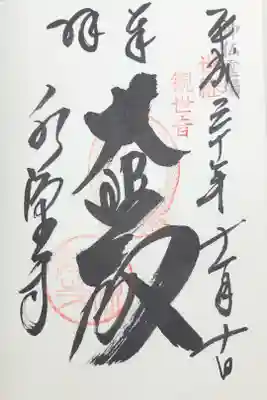 平成三十年十一月十日
観世音
奉拝
大悲殿
永
寺